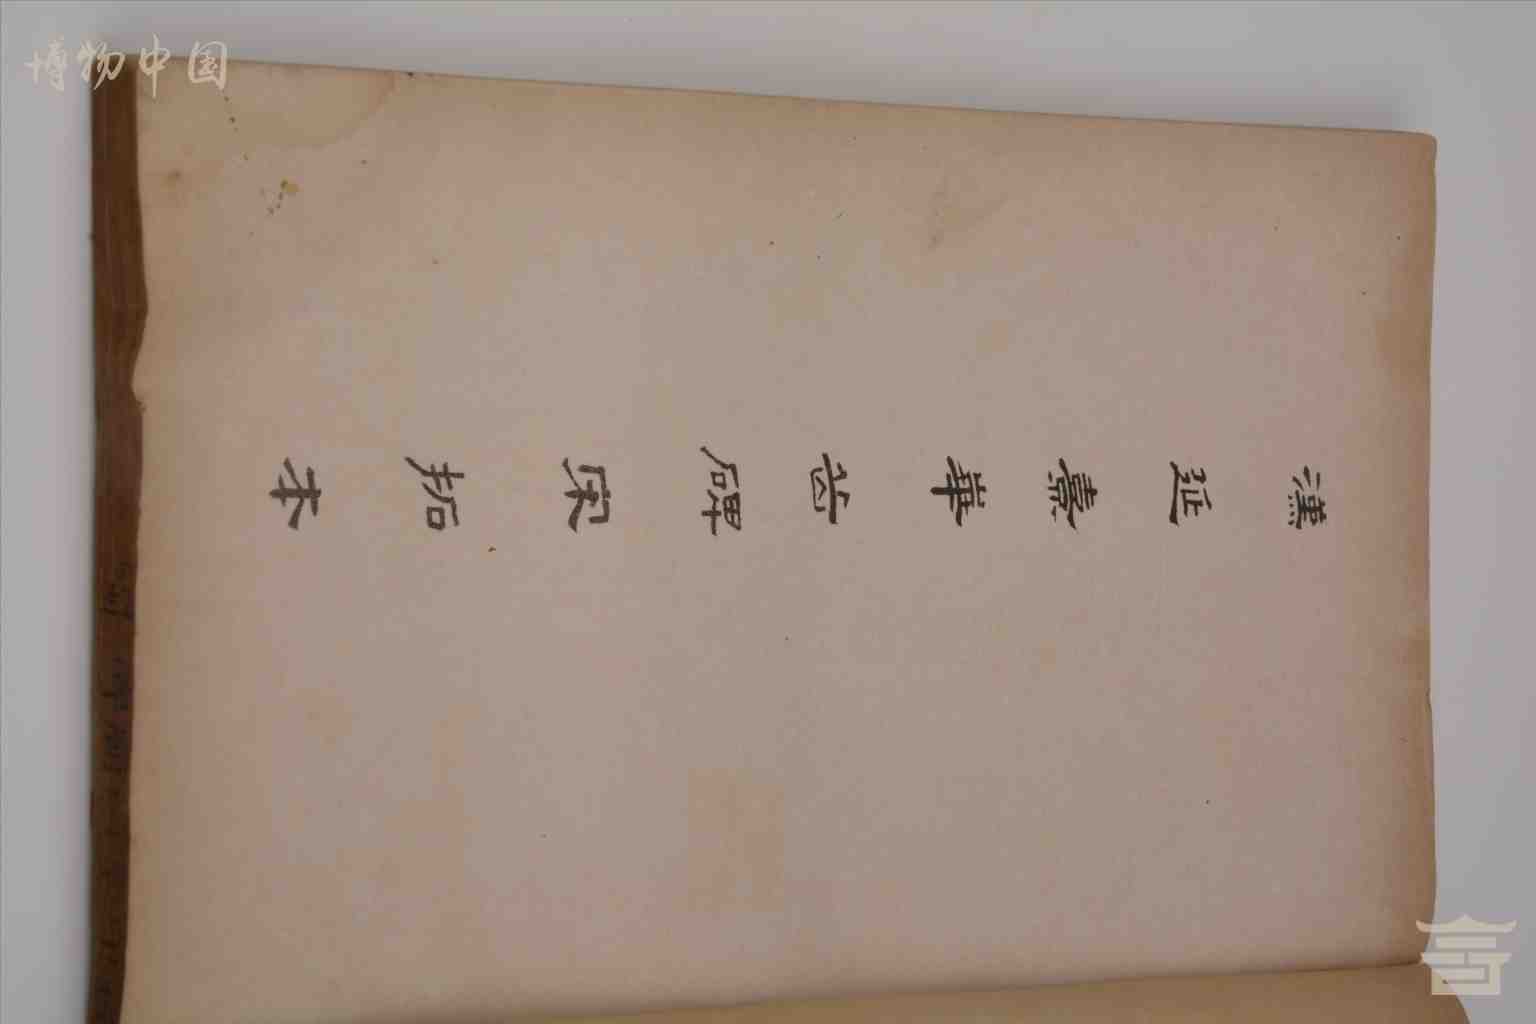 博物中国
漢延熹華岳碑宋拓本